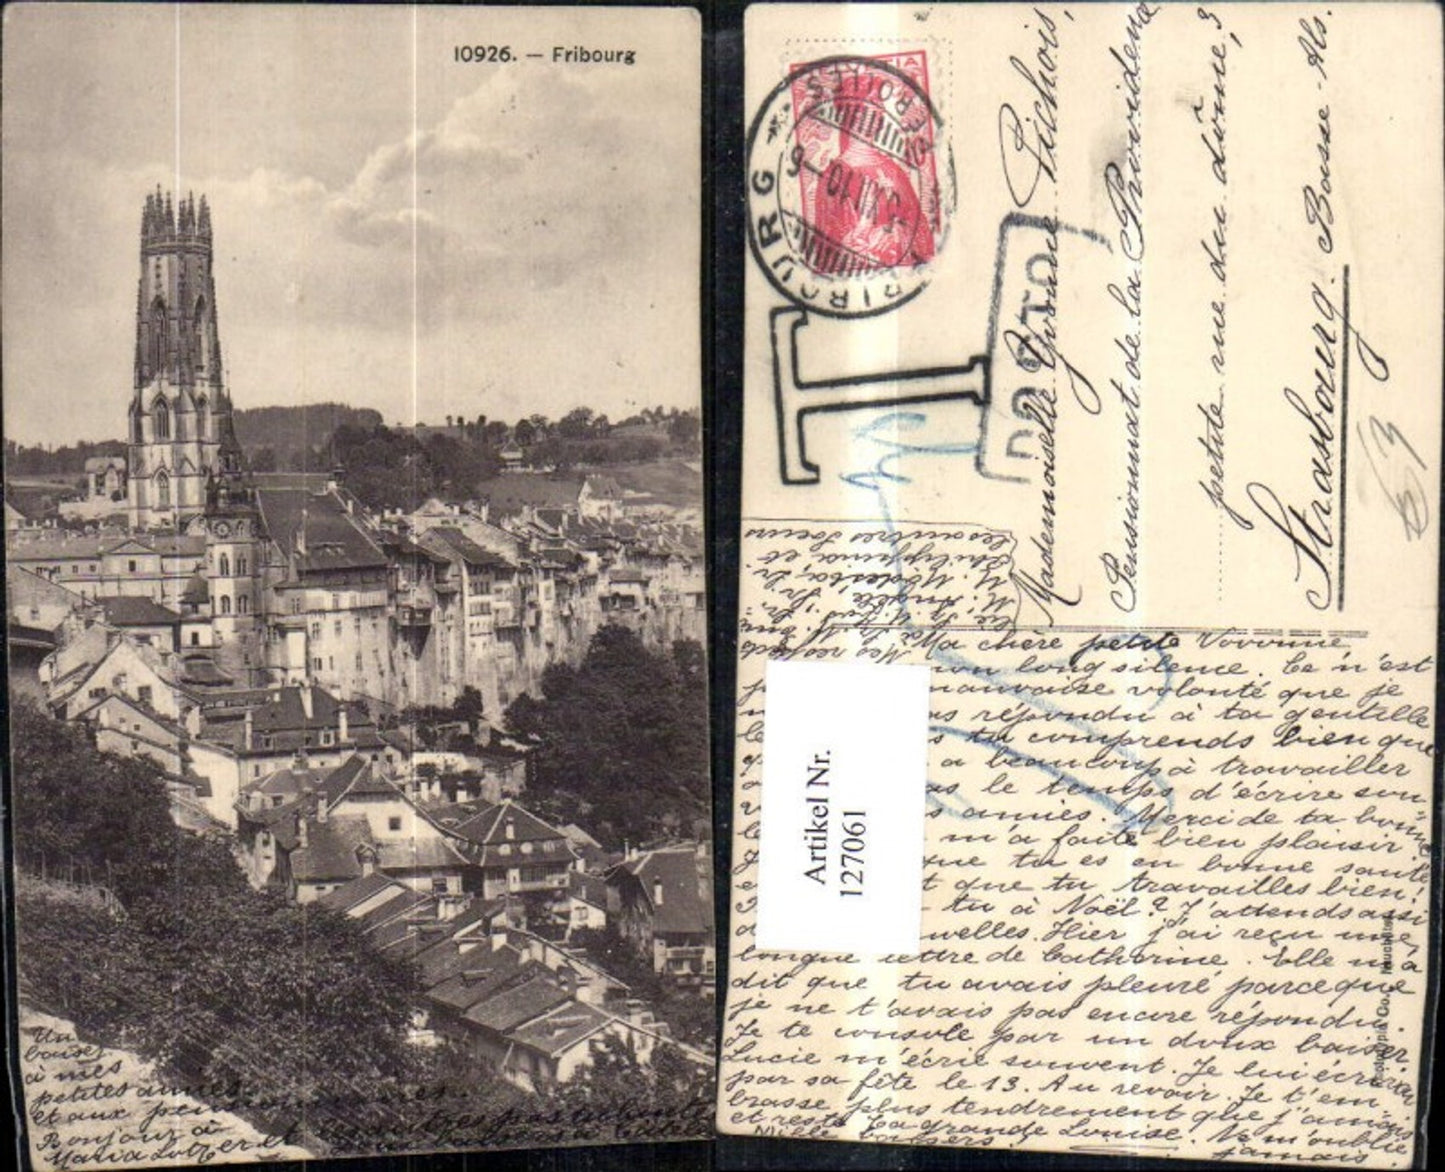 10926. — Fribourg
Un
baiser
à mes
petites amies
et aux pensionnaires.
Bonjour à
Maria Lotzer et
HELVETIA
FRIBOURG
3.XII.10-6
T
PORTO
Mademoiselle Yvonne Pichois,
Pensionnat de la Providence
petite rue du dôme, 3
Strasbourg. Basse-Als.
63
les autres Soeurs
Philippina et
M. Modesta, Sr.
M. Angèle
Mes resp
Ma chère petite Vovonne
mon long silence. Ce n'est
mauvaise volonté que je
répondu à ta gentille
tu comprends bien que
a beaucoup à travailler
le temps d'écrire son
amies. Merci de ta bonne
m'a faite bien plaisir
que tu es en bonne santé
que tu travailles bien!
tu à Noël? J'attends assi
Hier j'ai reçu une
longue lettre de Catherine. Elle m'a
dit que tu avais pleuré parceque
je ne t'avais pas encore répondu.
Je te console par un doux baiser
Lucie m'écrie souvent. Je lui écrirai
par sa fête le 13. Au revoir. Je t'em
brasse plus tendrement que j'amais
et reste ta grande Louise. Ne m'oublie
Mille baisers. jamais.
Artikel Nr.
127061